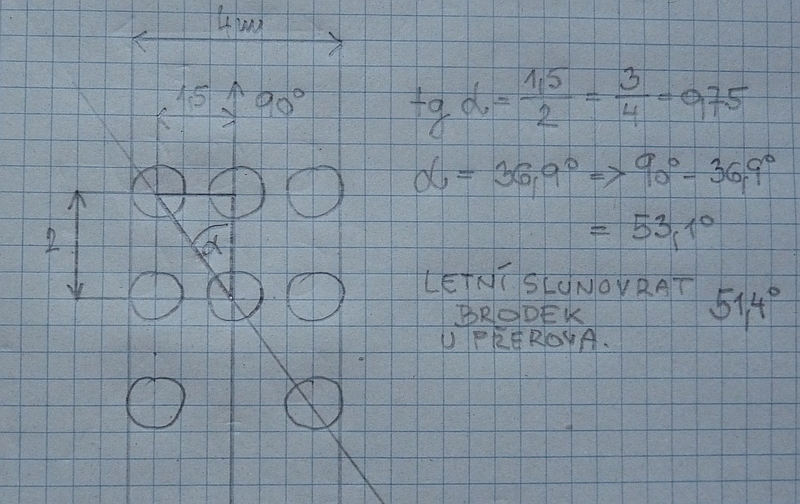 4m
1,5 90°
tg α = 1,5/2 = 3/4 = 0,75
α = 36,9° => 90° - 36,9°
= 53,1°
2
α
LETNÍ SLUNOVRAT 51,4°
BRODEK
U PŘEROVA.